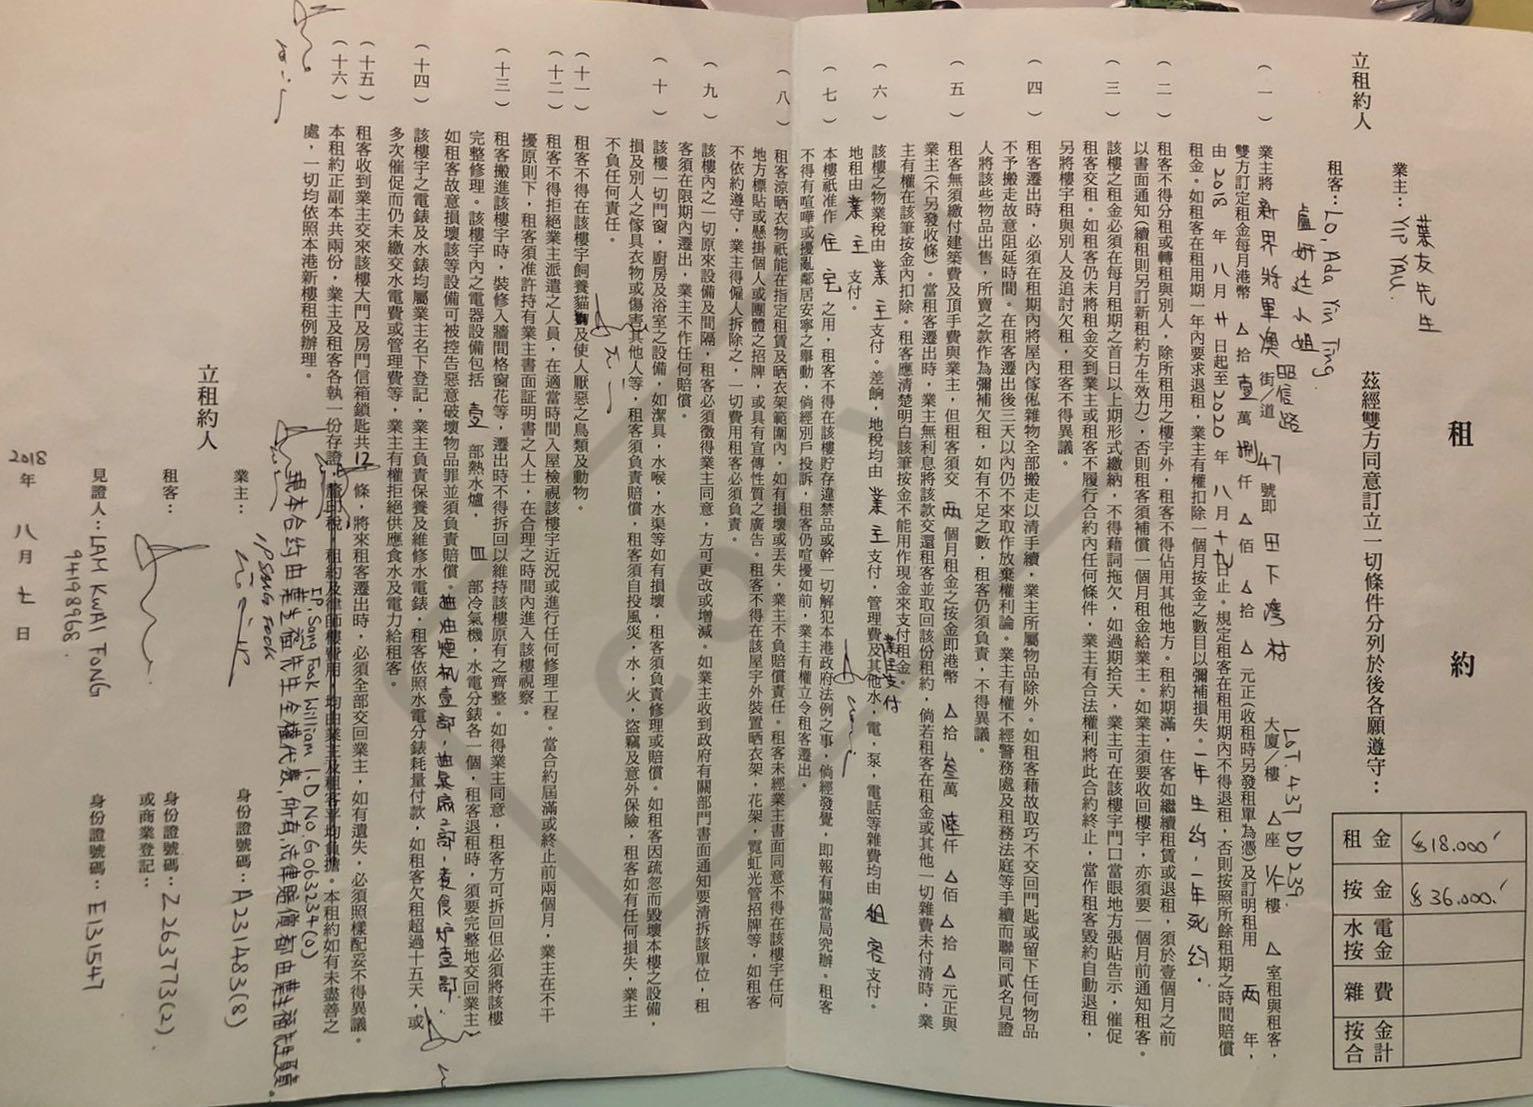 租約
茲經雙方同意訂立一切條件分列於後各願遵守：
立租約人
業主：YIP YAU
葉友先生
租客：Lo, Ada Yin Ting
盧妍廷小姐
租金 $18,000
按金 $36,000
水電按金
雜費
按金合計
（一）業主將新界將軍澳街／道 昭信路 47 號即 田下灣村 大廈／樓 △ 座 1/F 樓 △ 室租與租客，
LOT. 437 DD239
雙方訂定租金每月港幣 △ 拾 壹 萬 捌 仟 △ 佰 △ 拾 △ 元正（收租時另發租單為憑）及訂明租用 兩 年，
由 2018 年 八 月 廿 日起至 2020 年 八 月 十九 日止。規定租客在租用期內不得退租，否則按照所餘租期之時間賠償
租金。如租客在租用期一年內要求退租，業主有權扣除一個月按金之數目以彌補損失。一年生約，一年死約．
（二）租客不得分租或轉租與別人，除所租用之樓宇外，租客不得佔用其他地方。租約期滿，住客如繼續租賃或退租，須於壹個月之前
以書面通知（續租則另訂新租約方生效力），否則租客須補償一個月租金給業主。如業主須要收回樓宇，亦須要一個月前通知租客。
（三）該樓之租金必須在每月租期之首日以上期形式繳納，不得藉詞拖欠，如過期拾天，業主可在該樓宇門口當眼地方張貼告示，催促
租客交租。如租客仍未將租金交到業主或租客不履行合約內任何條件，業主有合法權利將此合約終止，當作租客毀約自動退租，
另將樓宇租與別人及追討欠租，租客不得異議。
（四）租客遷出時，必須在租期內將屋內傢俬雜物全部搬走以清手續，業主所屬物品除外。如租客藉故取巧不交回門匙或留下任何物品
不予搬走故意阻延時間。在租客遷出後三天以內仍不來取作放棄權利論。業主有權不經警務處及租務法庭等手續而聯同貳名見證
人將該些物品出售，所賣之款作為彌補欠租，如有不足之數，租客仍須負責，不得異議。
（五）租客無須繳付建築費及頂手費與業主，但租客須交 兩 個月租金之按金即港幣 △ 拾 叁 萬 陸 仟 △ 佰 △ 拾 △ 元正與
業主（不另發收條）。當租客遷出時，業主無利息將該款交還租客並取回該份租約，倘若租客在租金或其他一切雜費未付清時，業
主有權在該筆按金內扣除。租客應清楚明白該筆按金不能用作現金來支付租金。
（六）該樓之物業稅由 業主 支付。差餉，地稅均由 業主 支付，管理費及其他水，電，泵，電話等雜費均由 租客 支付。
業主支付
地租由 業主 支付。
（七）本樓祇准作 住宅 之用，租客不得在該樓貯存違禁品或幹一切解犯本港政府法例之事，倘經發覺，即報有關當局究辦。租客
不得有喧嘩或擾亂鄰居安寧之舉動，倘經別戶投訴，租客仍喧擾如前，業主有權立令租客遷出。
（八）租客涼晒衣物祇能在指定租賃及晒衣架範圍內，如有損壞或丟失，業主不負賠償責任。租客未經業主書面同意不得在該樓宇任何
地方標貼或懸掛個人或團體之招牌，或具有宣傳性質之廣告。租客不得在該屋宇外裝置晒衣架，花架，霓虹光管招牌等，如租客
不依約遵守，業主得僱人拆除之，一切費用租客必須負責。
（九）該樓內之一切原來設備及間隔，租客必須徵得業主同意，方可更改或增減。如業主收到政府有關部門書面通知要清拆該單位，租
客須在限期內遷出，業主不作任何賠償。
（十）該樓一切門窗，廚房及浴室之設備，如潔具，水喉，水渠等如有損壞，租客須負責修理或賠償。如租客因疏忽而毀壞本樓之設備，
損及別人之傢具衣物或傷害其他人等，租客須負責賠償，租客須自投風災，水，火，盜竊及意外保險，租客如有任何損失，業主
不負任何責任。
（十一）租客不得在該樓宇飼養貓及使人厭惡之鳥類及動物。
（十二）租客不得拒絕業主派遣之人員，在適當時間入屋檢視該樓宇近況或進行任何修理工程。當合約屆滿或終止前兩個月，業主在不干
擾原則下，租客須准許持有業主書面証明書之人士，在合理之時間內進入該樓視察。
（十三）租客搬進該樓宇時，裝修入牆間格窗花等，遷出時不得拆回以維持該樓原有之齊整。如得業主同意，租客方可拆回但必須將該樓
完整修理。該樓宇內之電器設備包括 壹 部熱水爐， 四 部冷氣機，水電分錶各一個，租客退租時，須要完整地交回業主
如租客故意損壞該等設備可被控告惡意破壞物品罪並須負責賠償。抽油煙机壹部，抽氣扇二部，煮食炉壹部．
（十四）該樓宇之電錶及水錶均屬業主名下登記，業主負責保養及維修水電錶，租客依照水電分錶耗量付款，如租客欠租超過十五天，或
多次催促而仍未繳交水電費或管理費等，業主有權拒絕供應食水及電力給租客。
（十五）租客收到業主交來該樓大門及房門信箱鎖匙共 12 條，將來租客遷出時，必須全部交回業主，如有遺失，必須照樣配妥不得異議。
（十六）本租約正副本共兩份，業主及租客各執一份存證，釐印稅，租約及律師樓費用，均由業主及租客平均負擔。本租約如有未盡善之
處，一切均依照本港新樓租例辦理。
IP Sang Fook William I.D No. G063234(0)
現本合約由葉生福先生全權代表，所有法律賠償都由葉生福先生負責。
立租約人
業主：
IP SANG FOOK
身份證號碼：A231483(8)
租客：
身份證號碼：Z263773(2)
或商業登記：
見證人：LAM KWAI FONG
94198968
身份證號碼：E131547
2018 年 八 月 七 日
COPY